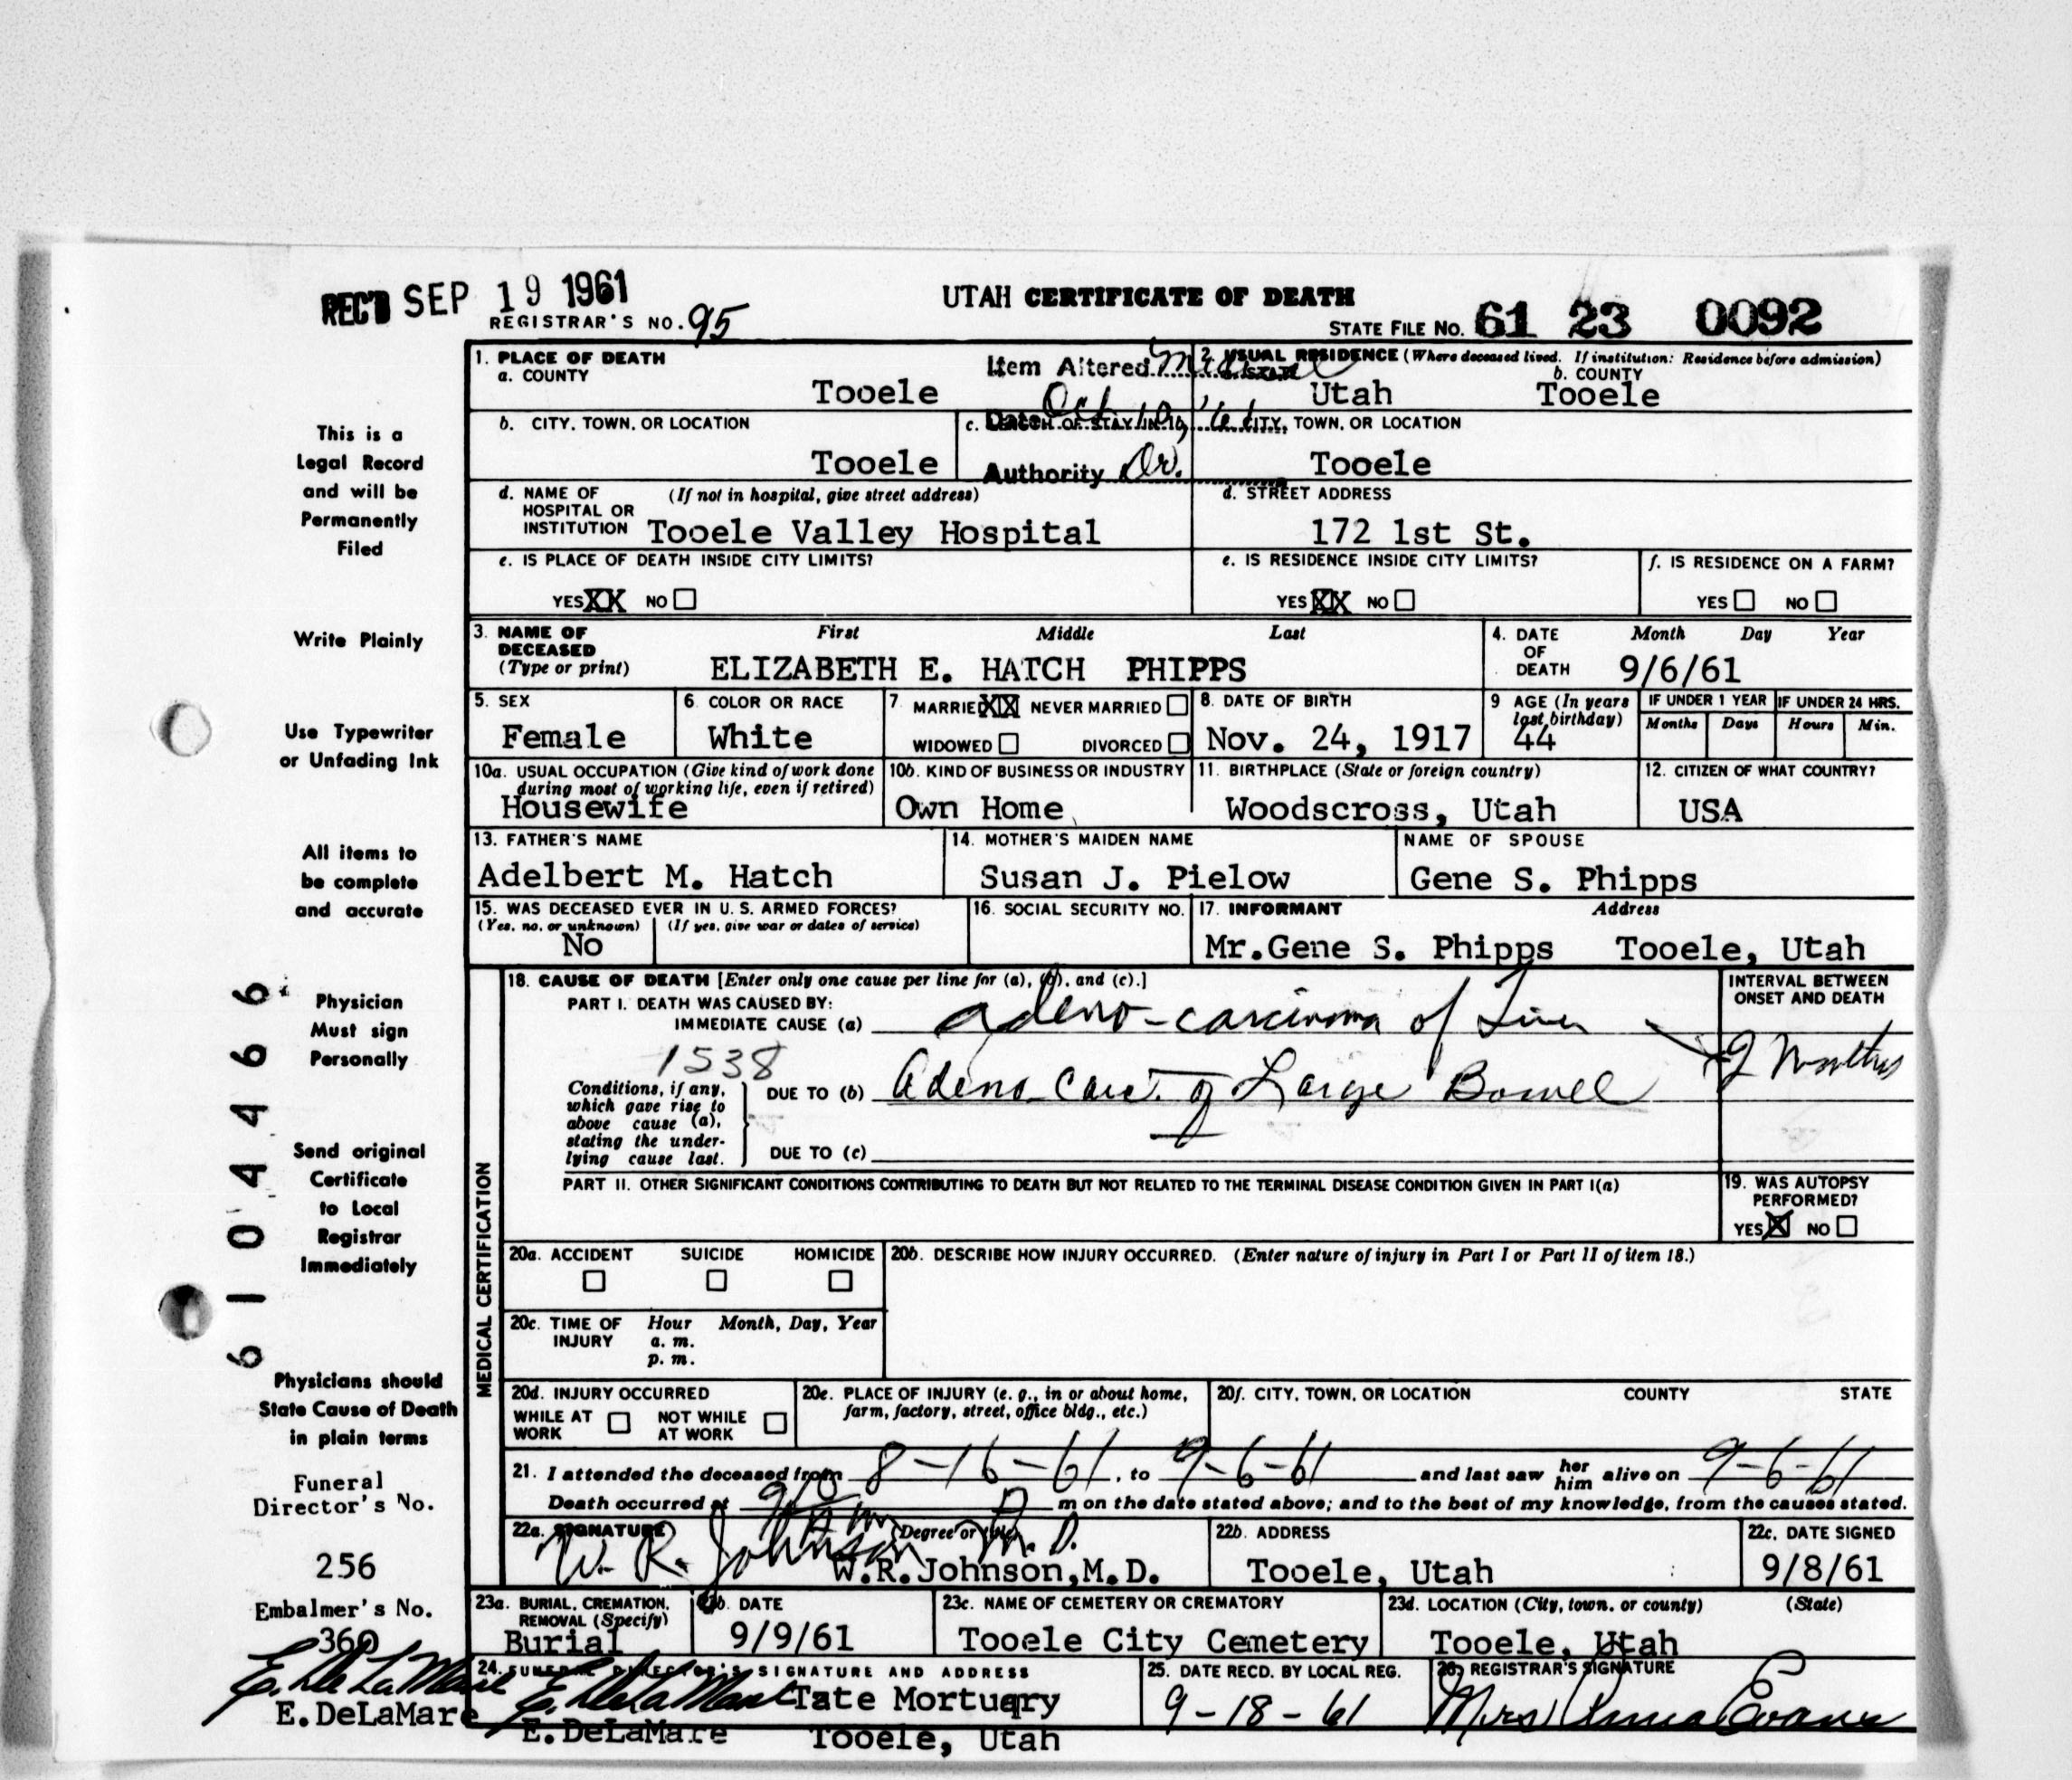 REC'D SEP 19 1961
UTAH CERTIFICATE OF DEATH
REGISTRAR'S NO. 95
STATE FILE No. 61 23 0092
This is a
Legal Record
and will be
Permanently
Filed
Write Plainly
Use Typewriter
or Unfading Ink
All items to
be complete
and accurate
Physician
Must sign
Personally
Send original
Certificate
to Local
Registrar
Immediately
Physicians should
State Cause of Death
in plain terms
Funeral
Director's No.
256
Embalmer's No.
360
E. DeLaMare
E.DeLaMare
6104466
1. PLACE OF DEATH
a. COUNTY
Tooele
Item Altered
Date Oct 10, '61
Authority Dr.
2. USUAL RESIDENCE (Where deceased lived. If institution: Residence before admission)
a. STATE
Utah
b. COUNTY
Tooele
b. CITY, TOWN, OR LOCATION
Tooele
c. LENGTH OF STAY IN 1b
c. CITY, TOWN, OR LOCATION
Tooele
d. NAME OF HOSPITAL OR INSTITUTION (If not in hospital, give street address)
Tooele Valley Hospital
d. STREET ADDRESS
172 1st St.
e. IS PLACE OF DEATH INSIDE CITY LIMITS?
YES XX NO
e. IS RESIDENCE INSIDE CITY LIMITS?
YES XX NO
f. IS RESIDENCE ON A FARM?
YES NO
3. NAME OF DECEASED (Type or print) First Middle Last
ELIZABETH E. HATCH PHIPPS
4. DATE OF DEATH Month Day Year
9/6/61
5. SEX
Female
6. COLOR OR RACE
White
7. MARRIED XX NEVER MARRIED
WIDOWED DIVORCED
8. DATE OF BIRTH
Nov. 24, 1917
9 AGE (In years last birthday)
44
IF UNDER 1 YEAR
Months Days
IF UNDER 24 HRS.
Hours Min.
10a. USUAL OCCUPATION (Give kind of work done during most of working life, even if retired)
Housewife
10b. KIND OF BUSINESS OR INDUSTRY
Own Home
11. BIRTHPLACE (State or foreign country)
Woodscross, Utah
12. CITIZEN OF WHAT COUNTRY?
USA
13. FATHER'S NAME
Adelbert M. Hatch
14. MOTHER'S MAIDEN NAME
Susan J. Pielow
NAME OF SPOUSE
Gene S. Phipps
15. WAS DECEASED EVER IN U. S. ARMED FORCES?
(Yes, no, or unknown) (If yes, give war or dates of service)
No
16. SOCIAL SECURITY NO.
17. INFORMANT Address
Mr.Gene S. Phipps Tooele, Utah
MEDICAL CERTIFICATION
18. CAUSE OF DEATH [Enter only one cause per line for (a), (b), and (c).]
PART I. DEATH WAS CAUSED BY:
IMMEDIATE CAUSE (a) adeno-carcinoma of Liver
1538
Conditions, if any, which gave rise to above cause (a), stating the underlying cause last.
DUE TO (b) Adeno-Carc. of Large Bowel
DUE TO (c)
INTERVAL BETWEEN ONSET AND DEATH
9 Months
PART II. OTHER SIGNIFICANT CONDITIONS CONTRIBUTING TO DEATH BUT NOT RELATED TO THE TERMINAL DISEASE CONDITION GIVEN IN PART I(a)
19. WAS AUTOPSY PERFORMED?
YES X NO
20a. ACCIDENT SUICIDE HOMICIDE
20b. DESCRIBE HOW INJURY OCCURRED. (Enter nature of injury in Part I or Part II of item 18.)
20c. TIME OF INJURY Hour Month, Day, Year
a. m.
p. m.
20d. INJURY OCCURRED
WHILE AT WORK NOT WHILE AT WORK
20e. PLACE OF INJURY (e. g., in or about home, farm, factory, street, office bldg., etc.)
20f. CITY, TOWN, OR LOCATION COUNTY STATE
21. I attended the deceased from 8-16-61, to 9-6-61 and last saw her him alive on 9-6-61
Death occurred at m on the date stated above; and to the best of my knowledge, from the causes stated.
22a. SIGNATURE (Degree or title)
W. R. Johnson M.D.
W.R.Johnson,M.D.
22b. ADDRESS
Tooele, Utah
22c. DATE SIGNED
9/8/61
23a. BURIAL, CREMATION, REMOVAL (Specify)
Burial
23b. DATE
9/9/61
23c. NAME OF CEMETERY OR CREMATORY
Tooele City Cemetery
23d. LOCATION (City, town, or county) (State)
Tooele, Utah
24. FUNERAL DIRECTOR'S SIGNATURE AND ADDRESS
E. DeLaMare Tate Mortuary
E.DeLaMare Tooele, Utah
25. DATE RECD. BY LOCAL REG.
9-18-61
26. REGISTRAR'S SIGNATURE
Mrs Evans